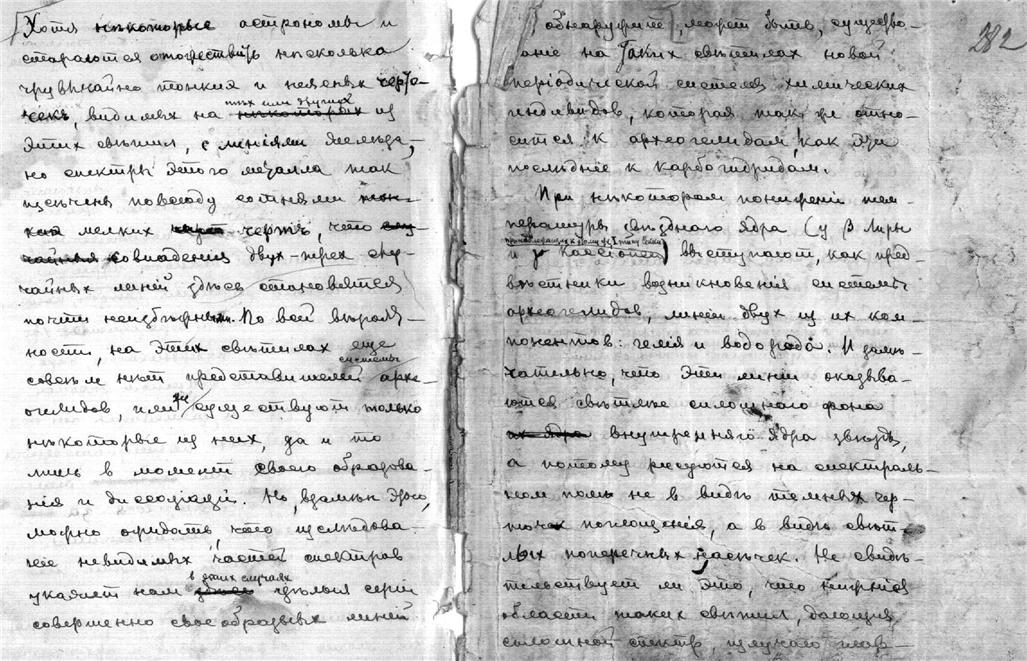 Хотя нѣкоторые астрономы и
стараются отожествить нѣсколько
чрезвычайно тонкия и неясныя черто-
чекъ, видимыхъ на
тѣхъ или другихъ
нѣкоторыхъ из
этих свѣтил, с линіями желѣза,
но спектръ этого металла так
испещрен повсюду сотнями тон-
ких мелких черт черт, что слу-
чайныя совпаденія двух-трех слу-
чайных линій здѣсь становятся
почти неизбѣжны. По всей вѣроят-
ности, на этих свѣтилах еще
системы
совсѣм нѣт представителей архе-
огелидов, или же существуют только
нѣкоторые из них, да и то
лишь в момент своего образова-
нія и диссоціаціи. Но, взамѣн этого,
можно ожидать, что изслѣдова-
ніе невидимых частей спектров
в этих случаях
укажет нам здесь цѣлыя серіи
совершенно своеобразных линій
282
обнаружит, может быть, существо-
вание на таких свѣтилах новой
періодической системы химических
индивидов, которая так же отно-
сится к археогелидам, как эти
послѣдніе к карбогидридам.
При нѣкотором пониженіи тем-
пературы звѣзднаго ядра (у β Лиры
и γ Кассіопеи) выступают, как пред-
вѣстники возникновенія системы
археогелидов, линіи двух из их ком-
понентов: гелія и водорода. И замѣ-
чательно, что эти линіи оказыва-
ются свѣтлѣе сплошного фона
их ядра внутренняго ядра звѣзды,
а потому рисуются на спектраль-
ном полѣ не в видѣ темных чер-
точек поглощенія, а в видѣ свѣт-
лых поперечных насѣчек. Не свидѣ-
тельствует ли это, что внутреннія
области таких свѣтил, дающія
сплошной спектр, излучают